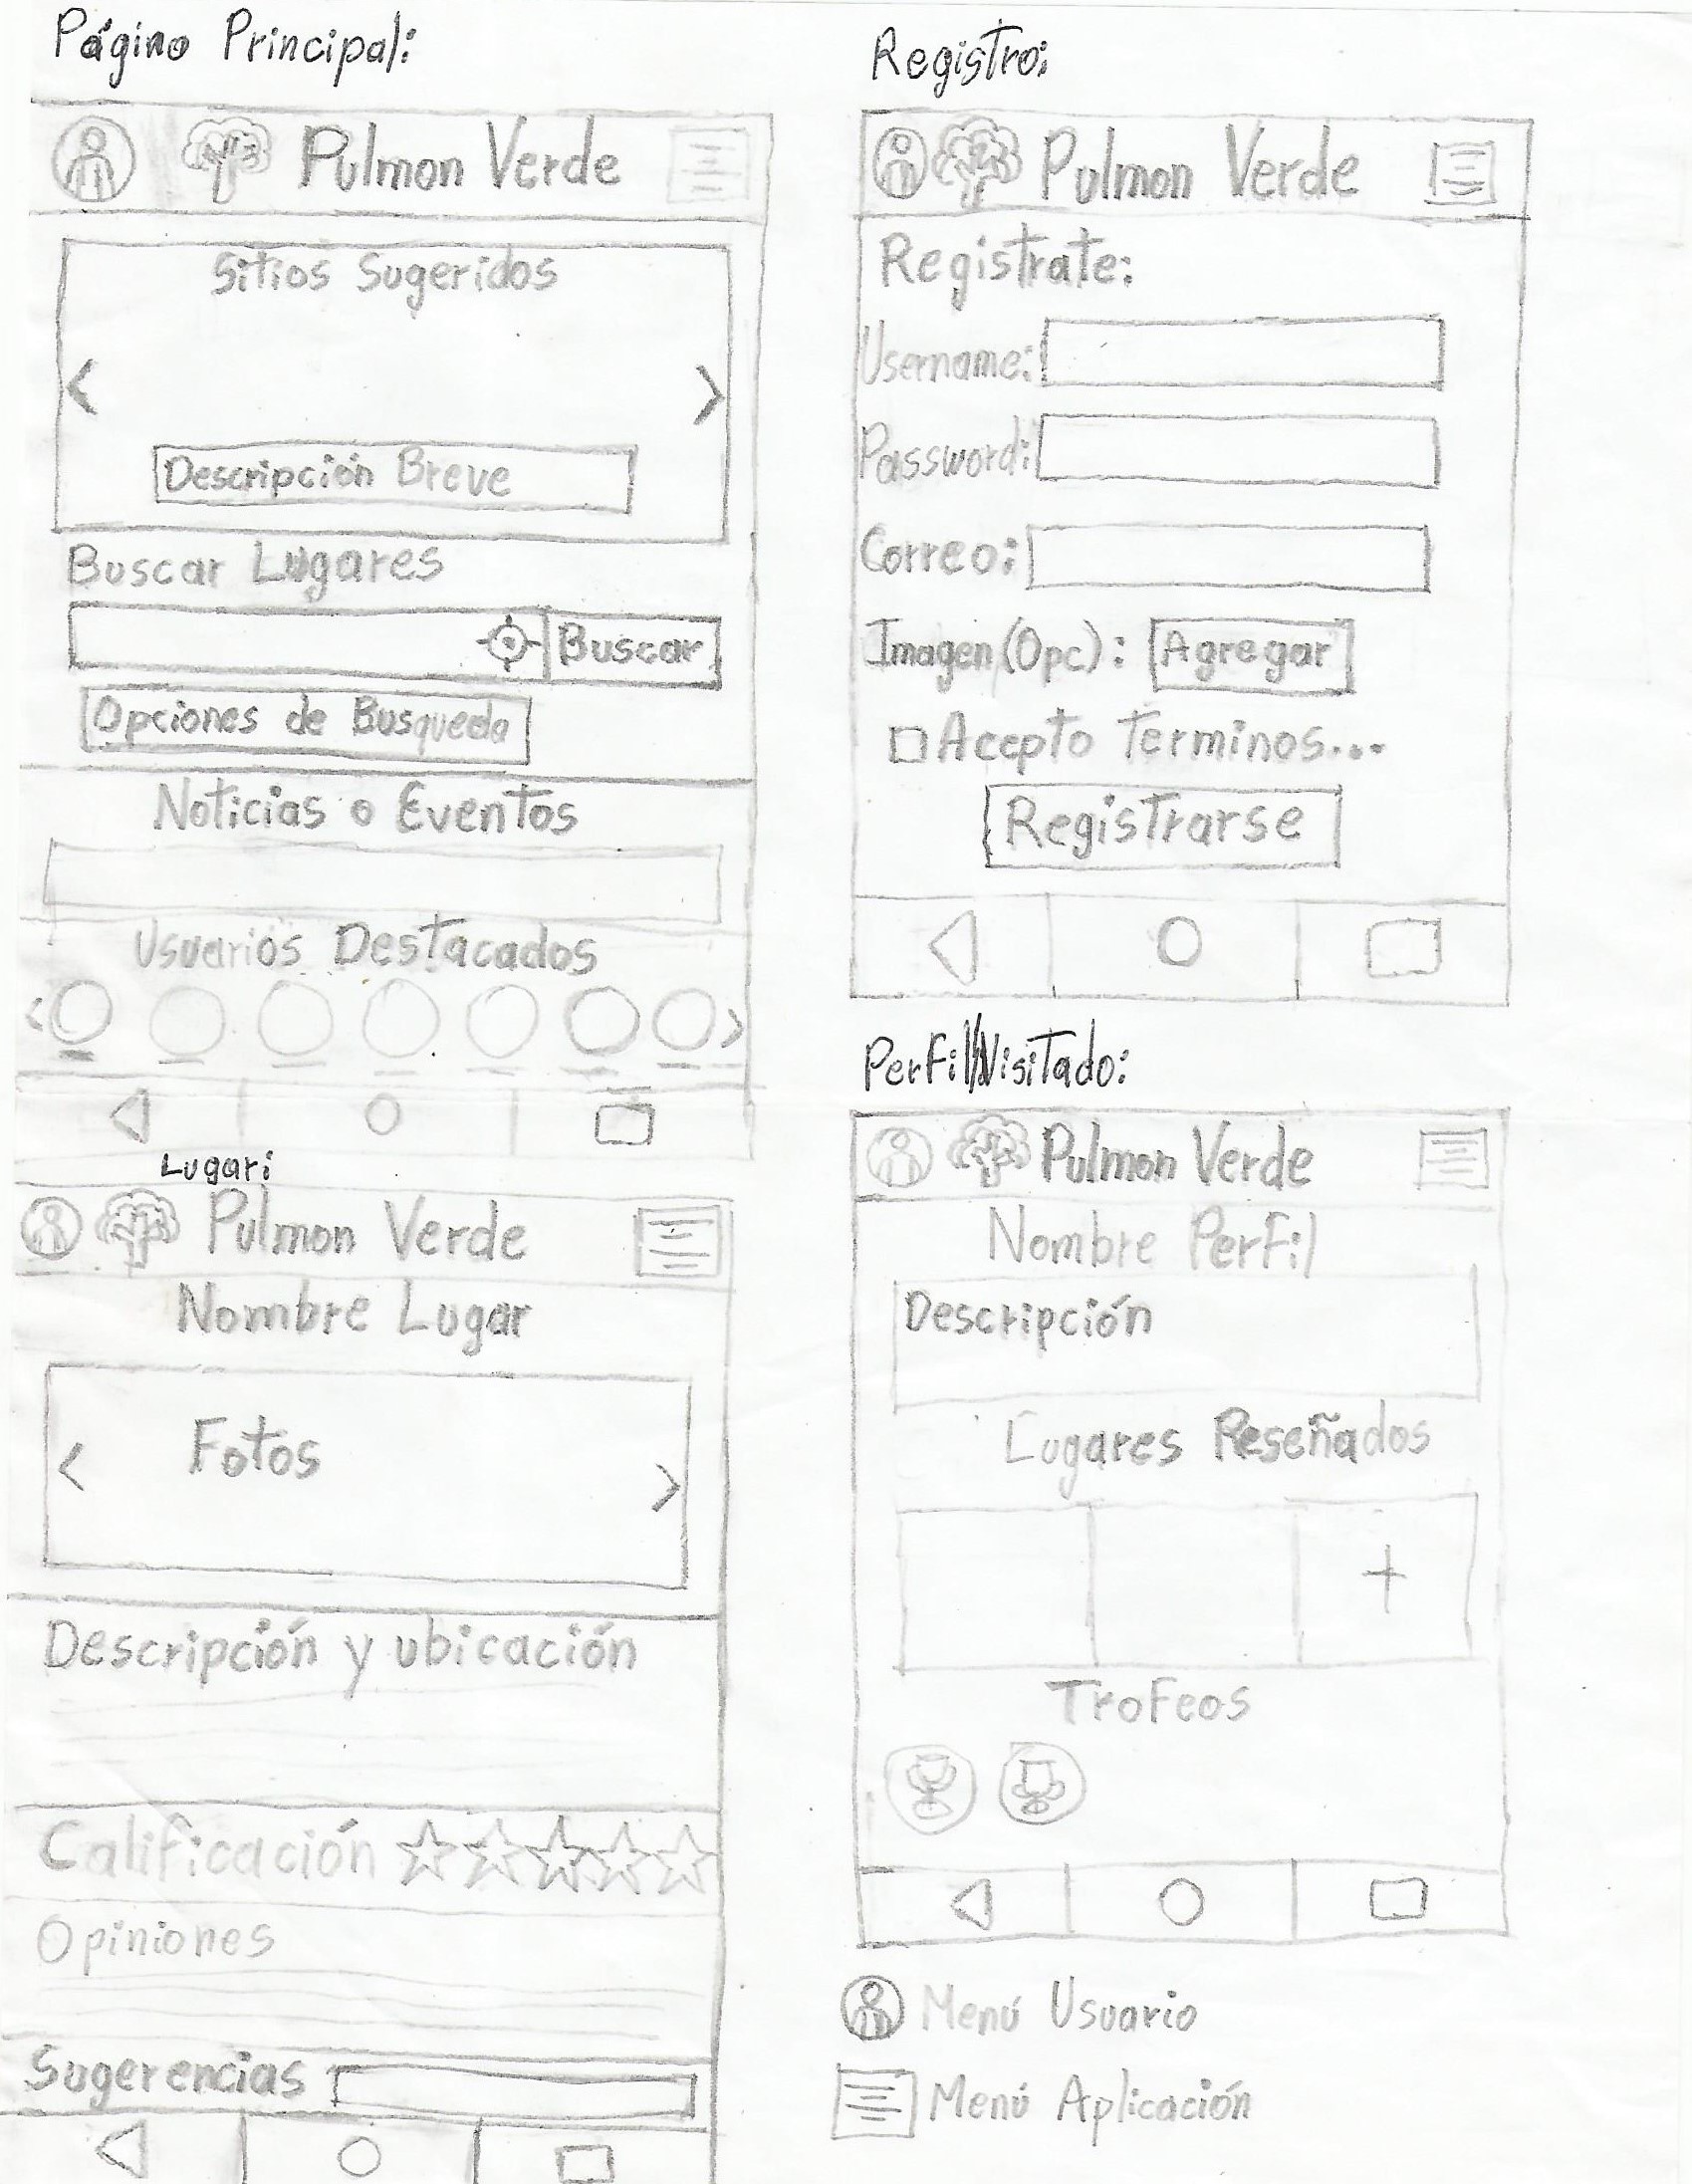 Página Principal:
Pulmon Verde
Sitios Sugeridos
<
>
Descripción Breve
Buscar Lugares
Buscar
Opciones de Busqueda
Noticias o Eventos
Usuarios Destacados
<
>
Lugar:
Pulmon Verde
Nombre Lugar
Fotos
<
>
Descripción y ubicación
Calificación
Opiniones
Sugerencias
Registro:
Pulmon Verde
Registrate:
Username:
Password:
Correo:
Imagen (Opc): Agregar
Acepto terminos...
Registrarse
Perfil Visitado:
Pulmon Verde
Nombre Perfil
Descripción
Lugares Reseñados
+
Trofeos
Menú Usuario
Menú Aplicación